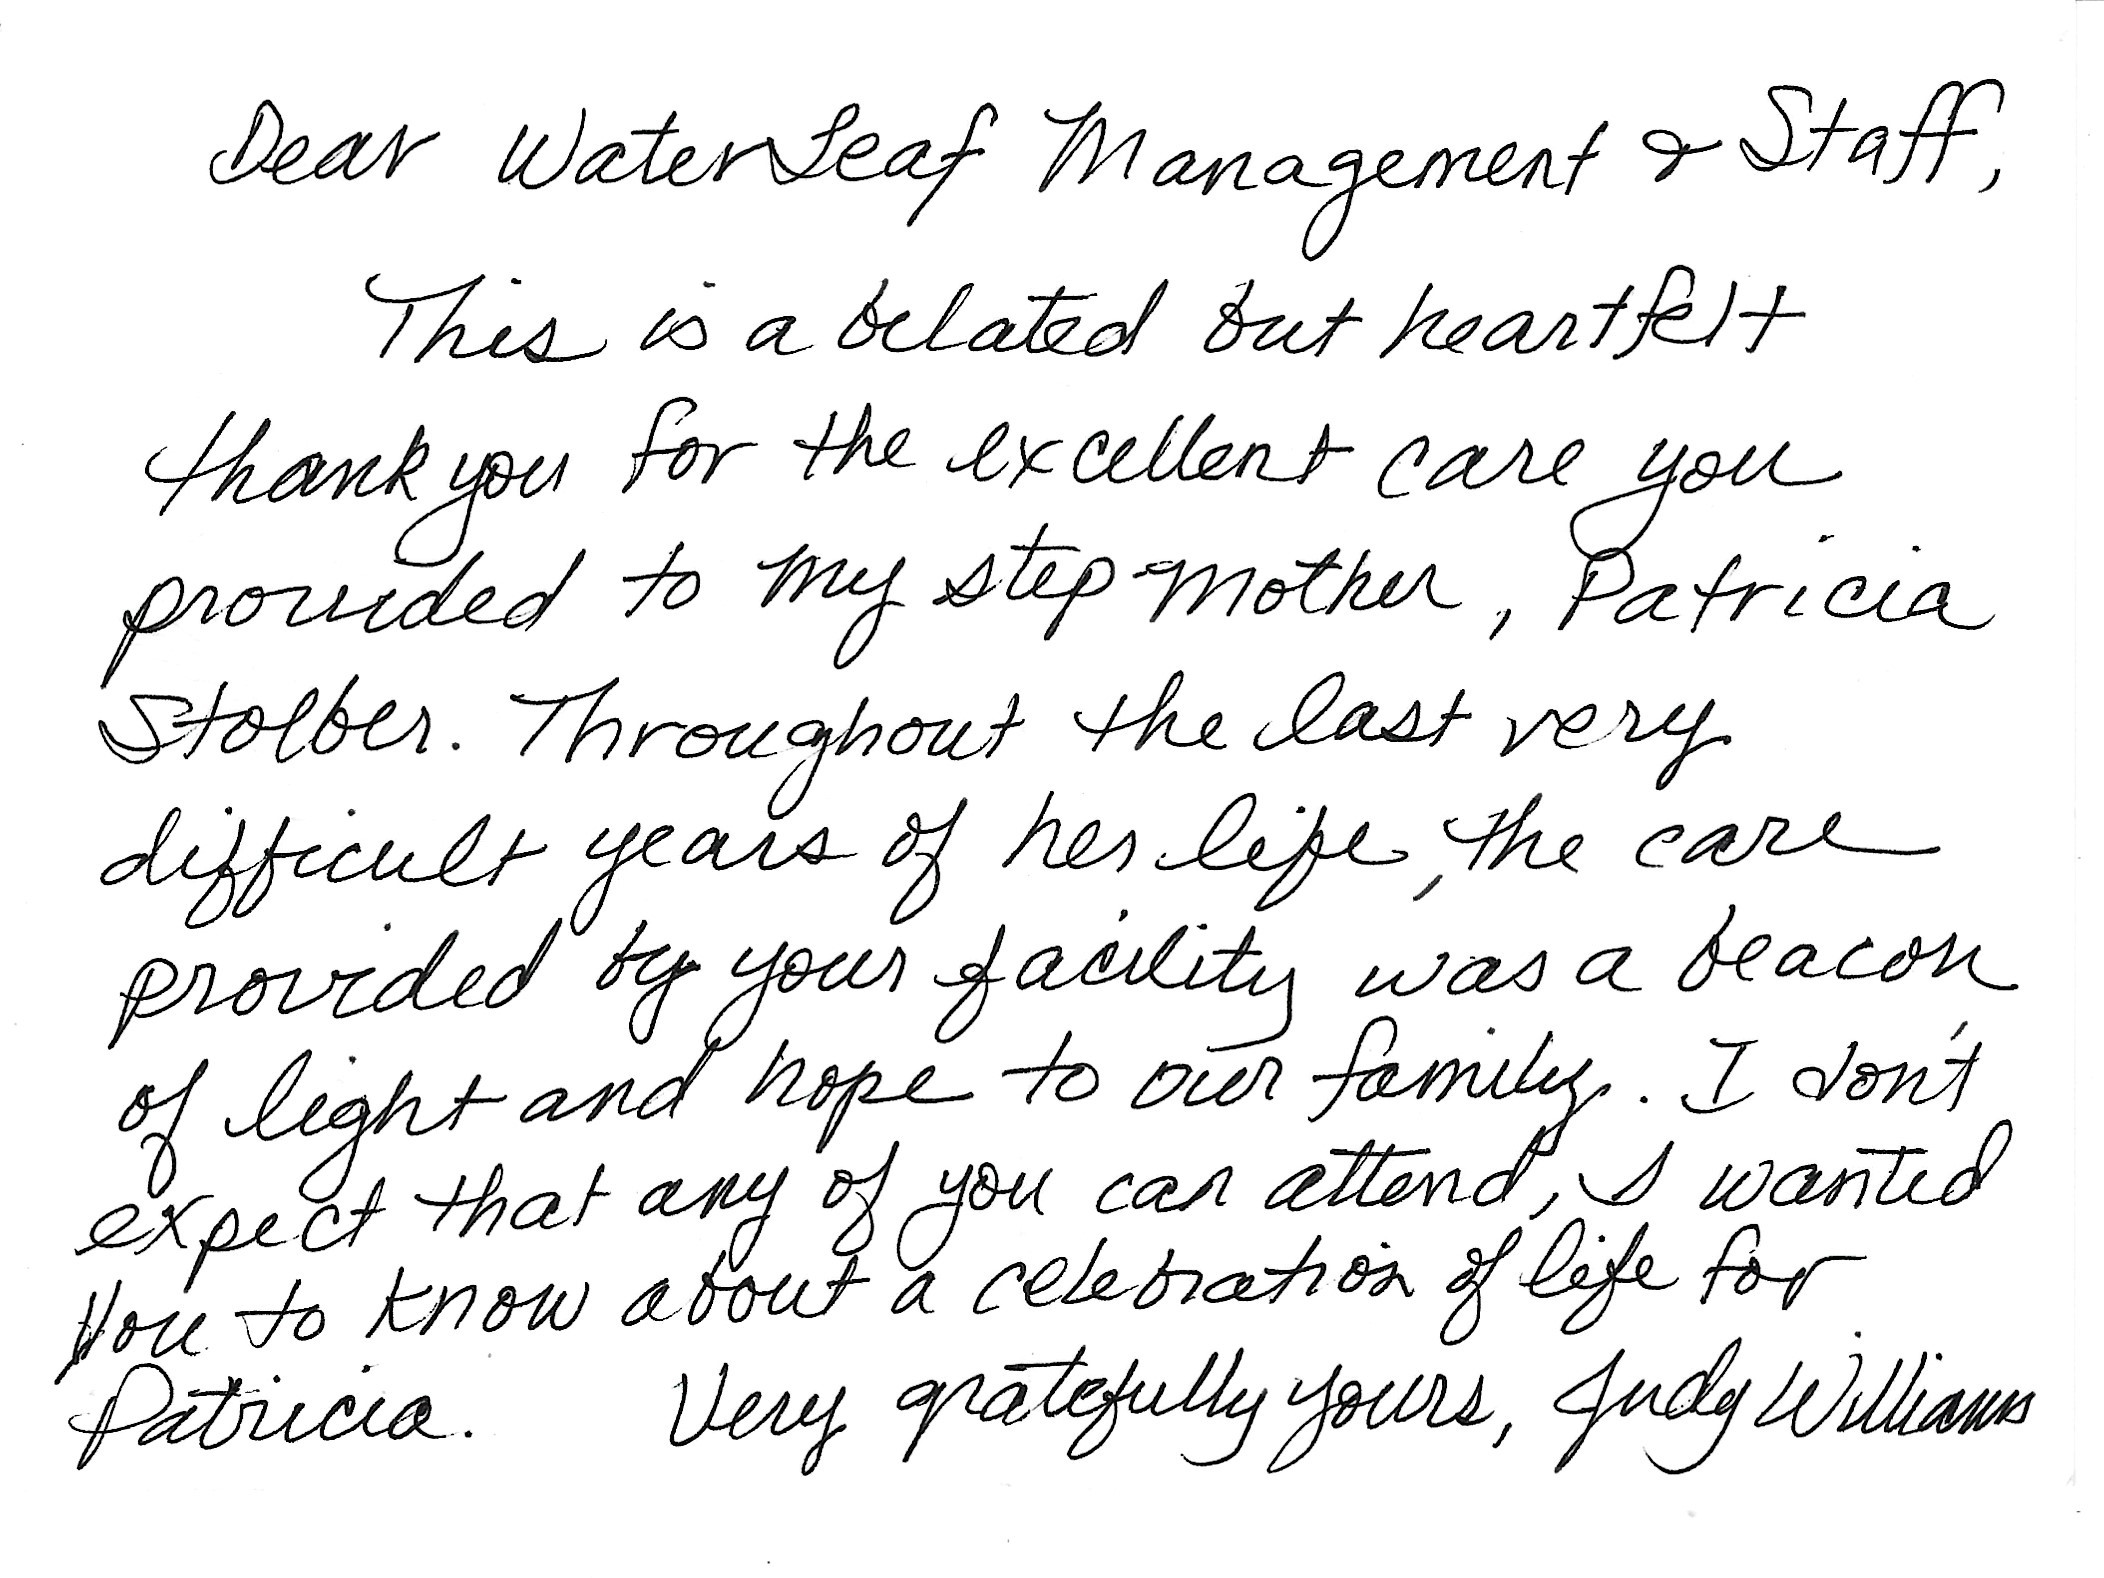 Dear WaterLeaf Management & Staff,
This is a belated but heartfelt
thank you for the excellent care you
provided to my step-mother, Patricia
Stolber. Throughout the last very
difficult years of her life, the care
provided by your facility was a beacon
of light and hope to our family. I don't
expect that any of you can attend, I wanted
you to know about a celebration of life for
Patricia. Very gratefully yours, Judy Williams